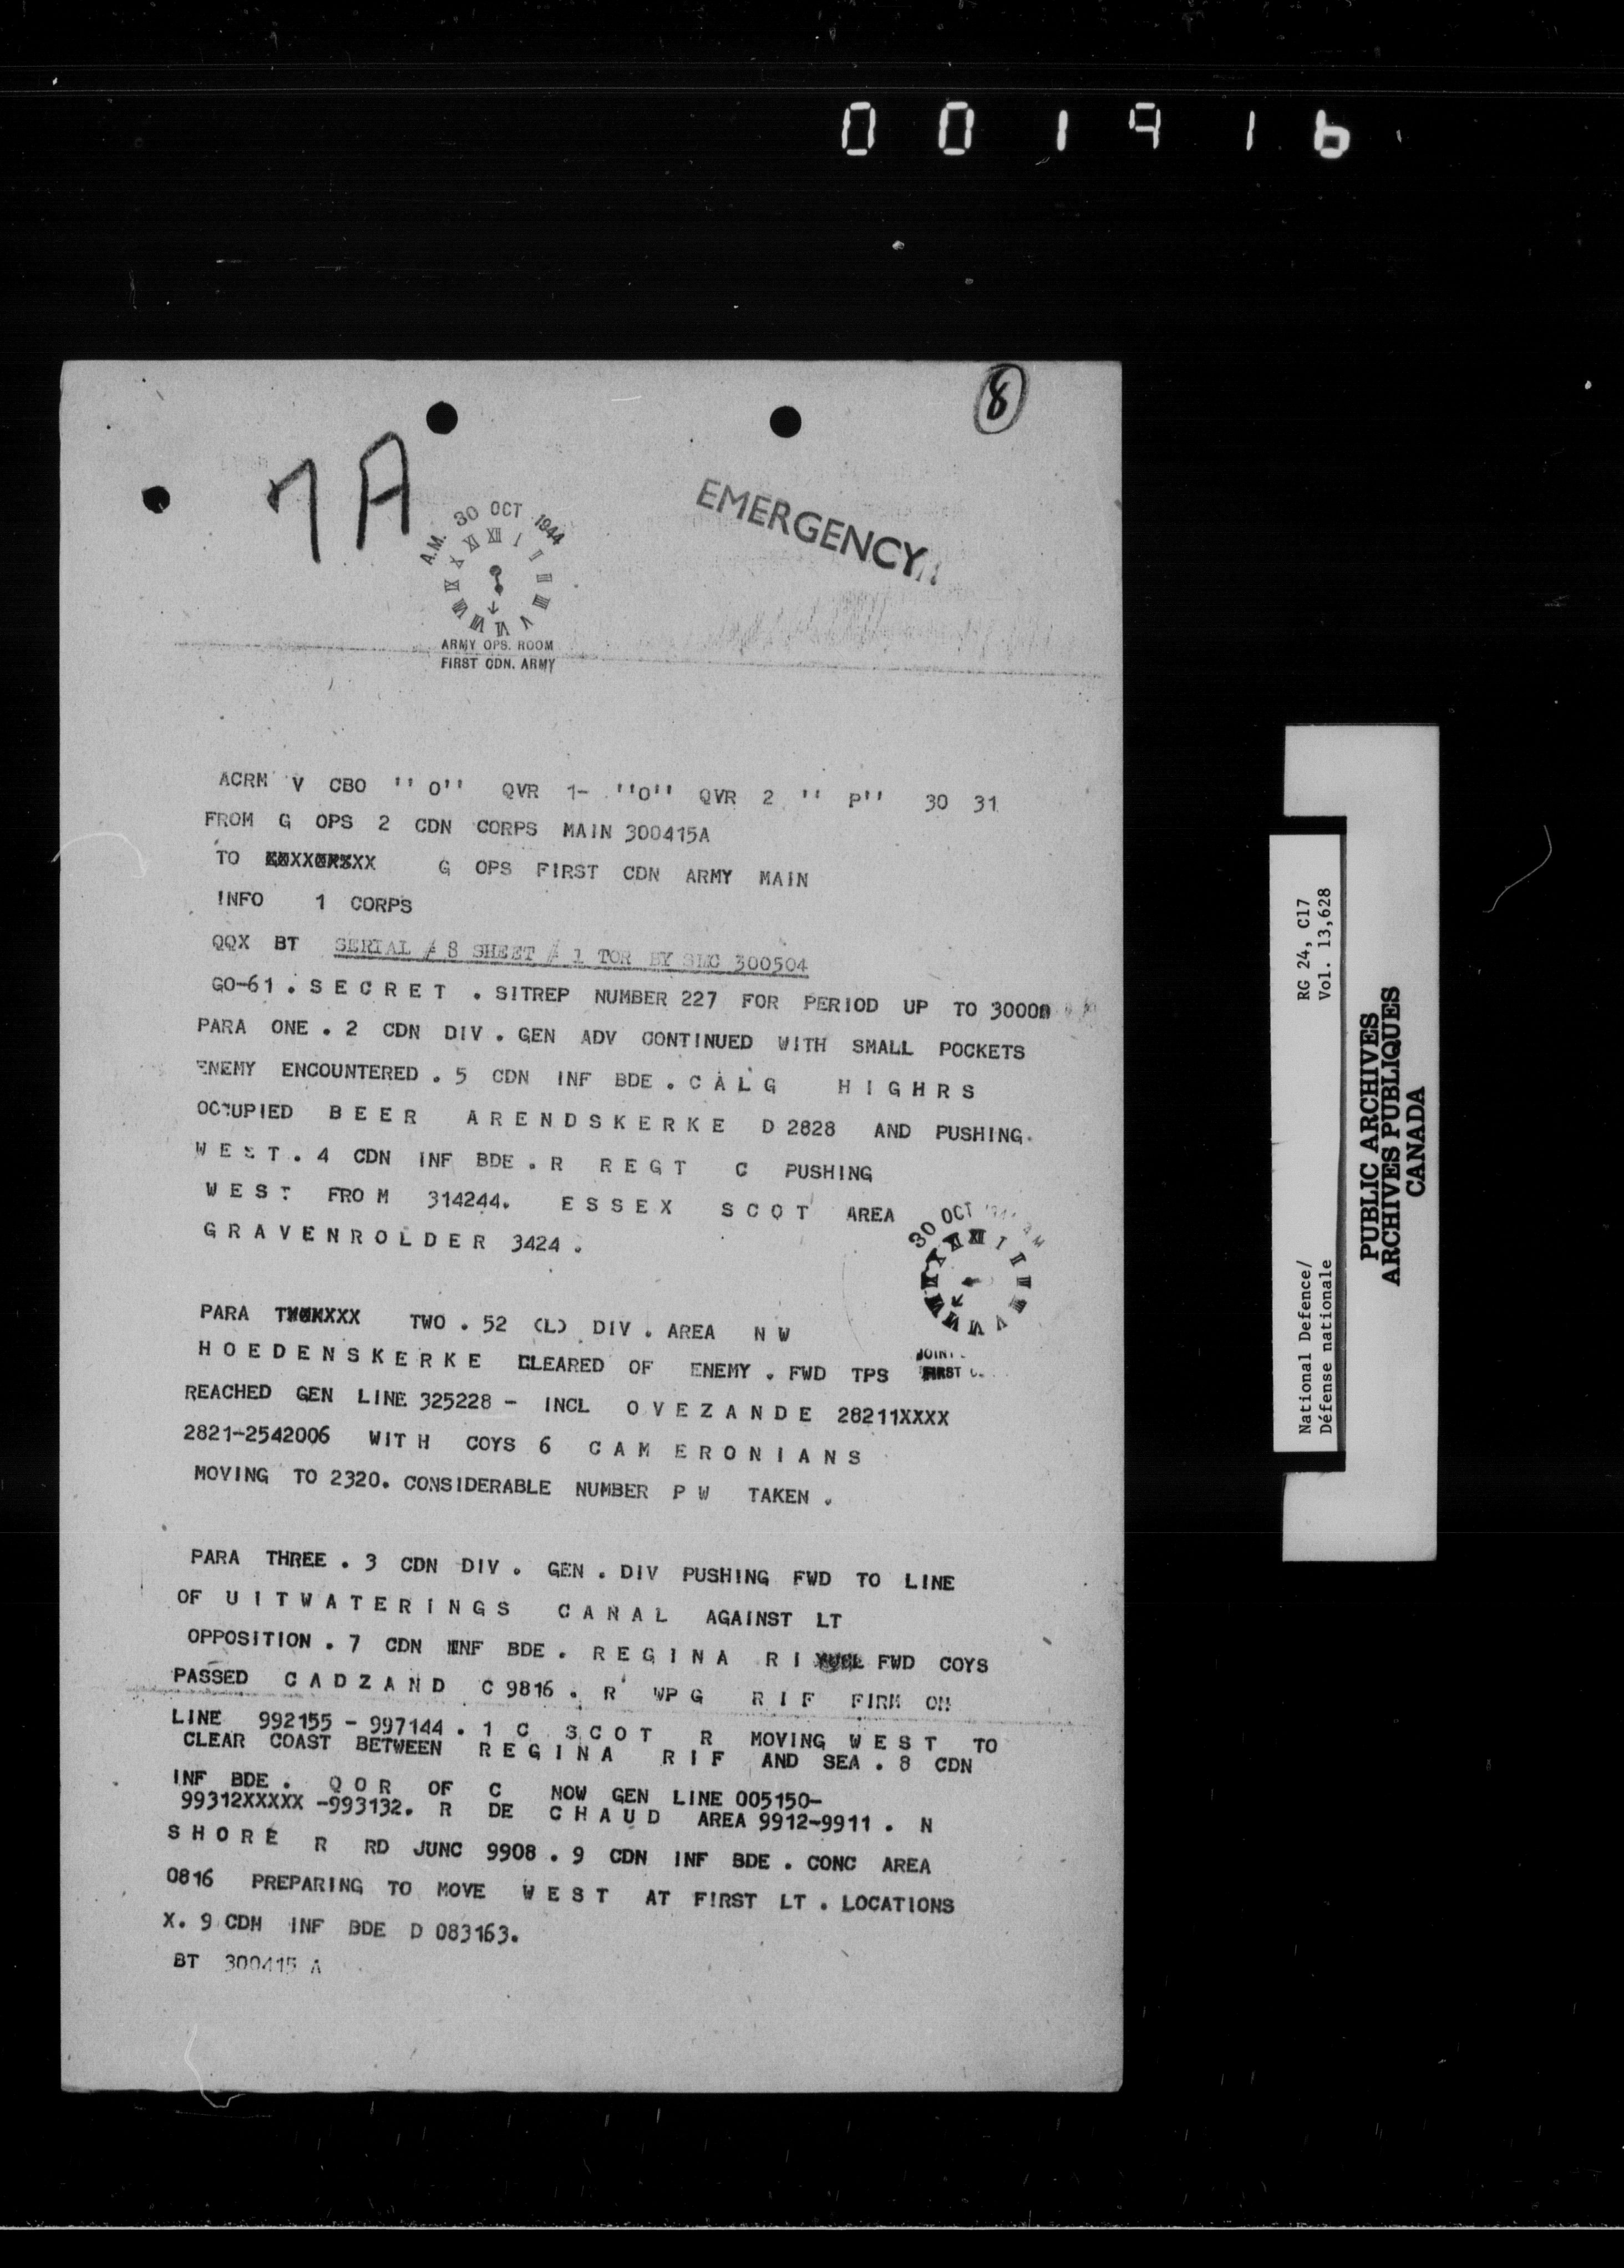 001916
8
7A
EMERGENCY
A.M. 30 OCT 1944
ARMY OPS. ROOM
FIRST CDN. ARMY
ACRM V CBO '' O'' QVR 1- ''O'' QVR 2 '' P'' 30 31
FROM G OPS 2 CDN CORPS MAIN 300415A
TO G OPS FIRST CDN ARMY MAIN
INFO 1 CORPS
QQX BT SERIAL # 8 SHEET # 1 TOR BY SLC 300504
GO-61 . S E C R E T . SITREP NUMBER 227 FOR PERIOD UP TO
PARA ONE . 2 CDN DIV . GEN ADV CONTINUED WITH SMALL POCKETS
ENEMY ENCOUNTERED . 5 CDN INF BDE . C A L G H I G H R S
OCCUPIED B E E R A R E N D S K E R K E D 2828 AND PUSHING.
W E S T . 4 CDN INF BDE . R R E G T C PUSHING
W E S T FRO M 314244. E S S E X S C O T AREA
G R A V E N R O L D E R 3424 .
30 OCT 1944 A M
JOINT
FIRST C
PARA TWO . 52 (L) DIV . AREA N W
H O E D E N S K E R K E CLEARED OF ENEMY . FWD TPS
REACHED GEN LINE 325228 - INCL O V E Z A N D E 28211XXXX
2821-2542006 WIT H COYS 6 C A M E R O N I A N S
MOVING TO 2320. CONSIDERABLE NUMBER P W TAKEN .
PARA THREE . 3 CDN DIV . GEN . DIV PUSHING FWD TO LINE
OF U I T W A T E R I N G S C A N A L AGAINST LT
OPPOSITION . 7 CDN INF BDE . R E G I N A R I FWD COYS
PASSED C A D Z A N D C 9816 . R WP G R I F FIRM ON
LINE 992155 - 997144 . 1 C S C O T R MOVING W E S T TO
CLEAR COAST BETWEEN R E G I N A R I F AND SEA . 8 CDN
INF BDE . Q O R OF C NOW GEN LINE 005150-
99312XXXXX -993132. R DE C H A U D AREA 9912-9911 . N
S H O R E R RD JUNC 9908 . 9 CDN INF BDE . CONC AREA
0816 PREPARING TO MOVE W E S T AT FIRST LT . LOCATIONS
X. 9 CDN INF BDE D 083163.
BT 300415 A
National Defence/ RG 24, C17
Défense nationale Vol. 13,628
PUBLIC ARCHIVES
ARCHIVES PUBLIQUES
CANADA